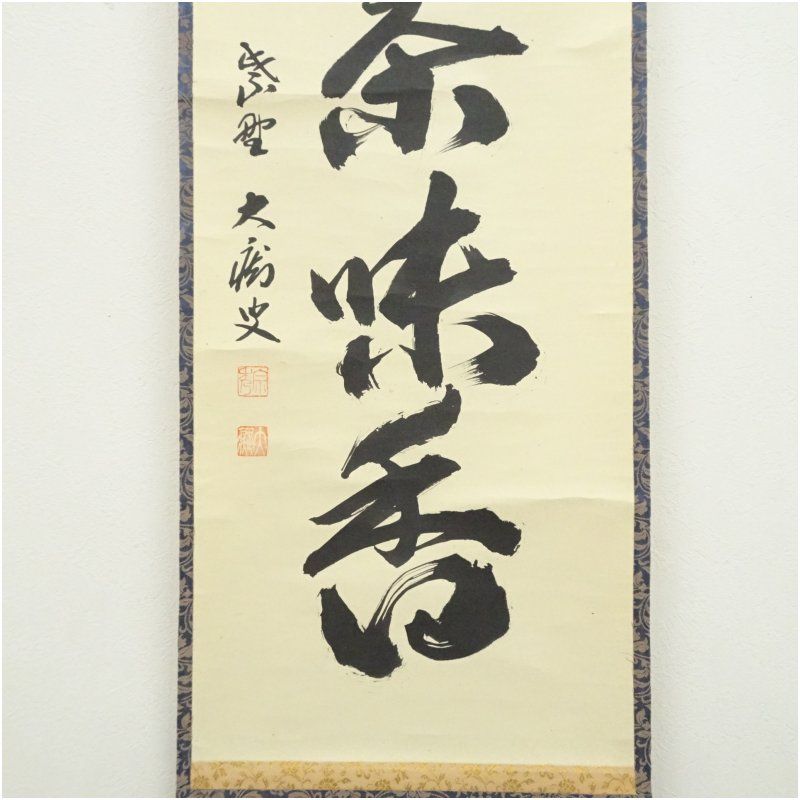 茶味香
紫野 大 叟